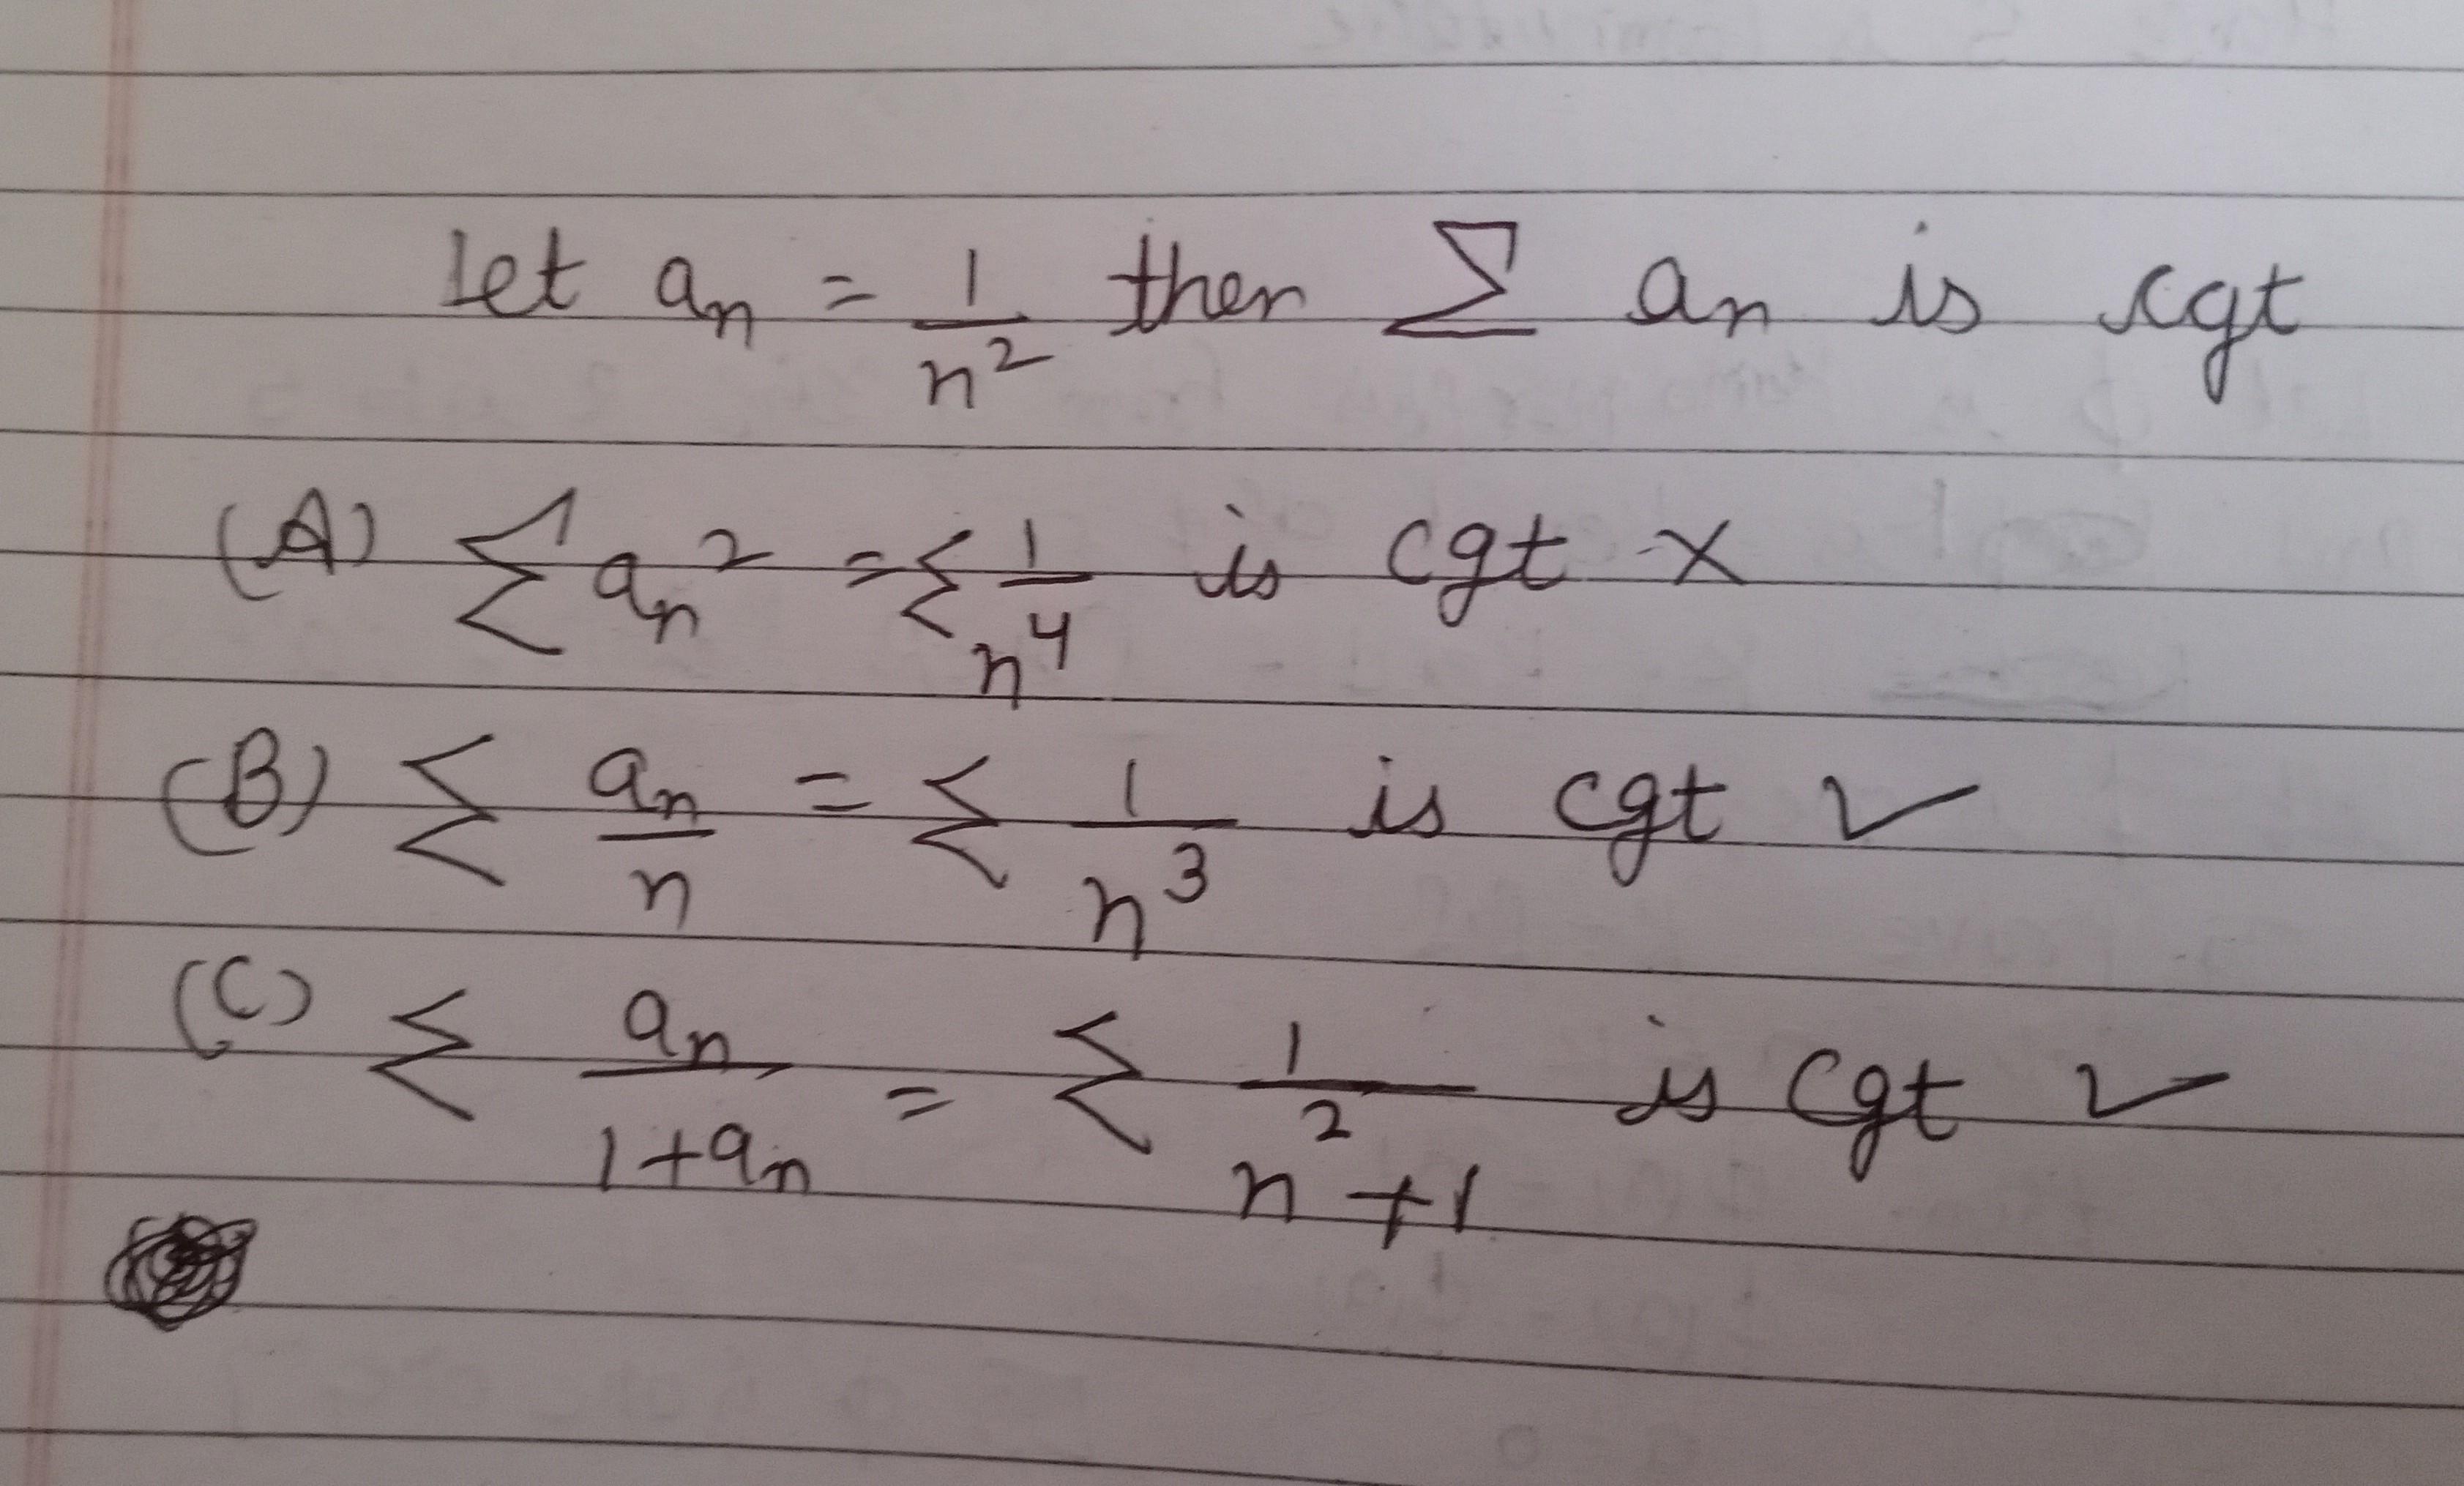 Let aₙ = 1/n² then Σ aₙ is cgt
(A) Σ aₙ² = Σ 1/n⁴ is cgt ×
(B) Σ aₙ/n = Σ 1/n³ is cgt ✓
(C) Σ aₙ/(1+aₙ) = Σ 1/(n²+1) is cgt ✓